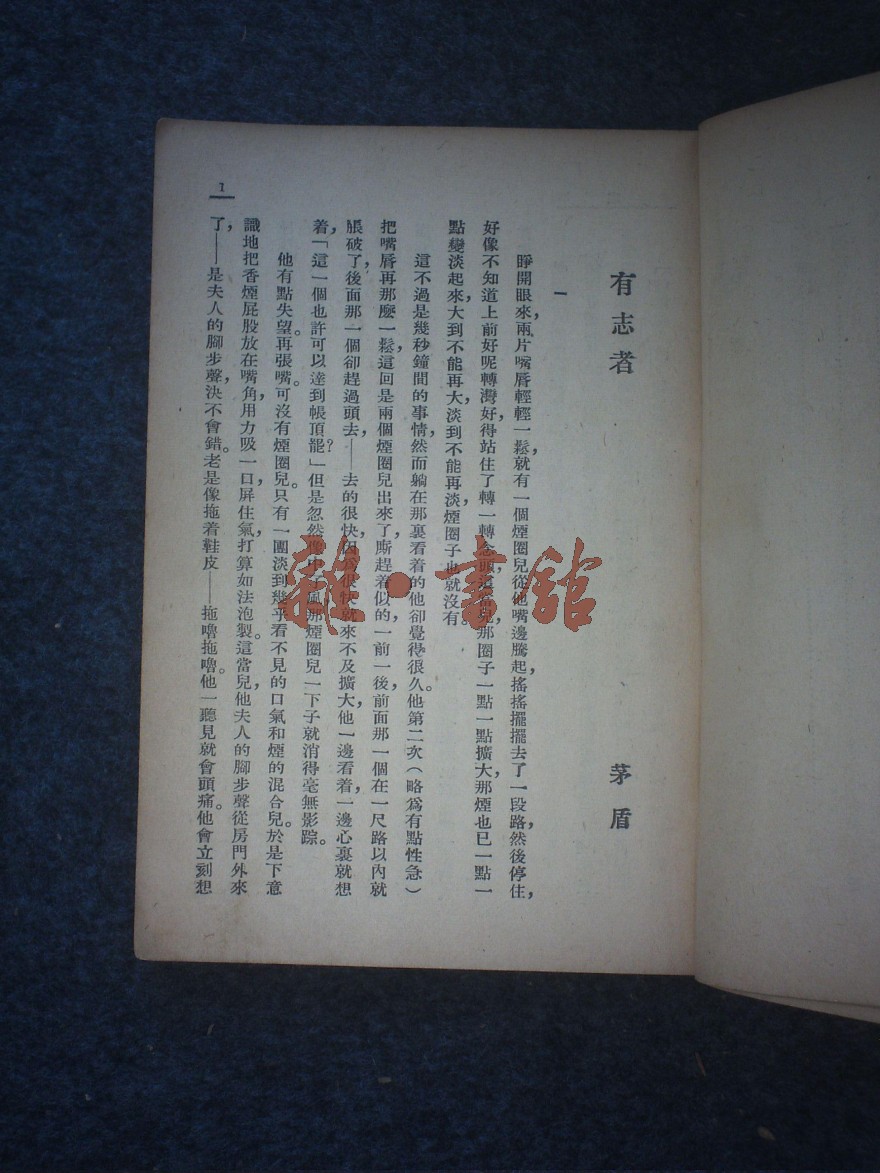 有志者
茅盾
一
睜開眼來,兩片嘴唇輕輕一鬆,就有一個煙圈兒從他嘴邊騰起,搖搖擺擺去了一段路,然後停住,
好像不知道上前好呢,轉灣好,得站住了轉一轉念頭,這當兒,那圈子一點一點擴大,那煙也已一點一
點變淡起來,大到不能再大,淡到不能再淡,煙圈子也就沒有
這不過是幾秒鐘間的事情,然而躺在那裏看着的他卻覺得很久。他第二次(略爲有點性急)
把嘴唇再那麽一鬆,這回是兩個煙圈兒出來了,廝趕着似的,一前一後,前面那一個在一尺路以內就
脹破了,後面那一個卻趕過頭去,——去的很快,因爲很快,就來不及擴大,他一邊看着,一邊心裏就想
着,「這一個也許可以達到帳頂罷?」但是忽然像中了風,那煙圈兒一下子就消得毫無影踪。
他有點失望。再張嘴。可沒有煙圈兒。只有一團淡到幾乎看不見的口氣和煙的混合兒。於是下意
識地把香煙屁股放在嘴角,用力吸一口,屏住氣,打算如法泡製。這當兒,他夫人的腳步聲從房門外來
了,——是夫人的腳步聲,決不會錯。老是像拖着鞋皮——拖嚕拖嚕。他一聽見就會頭痛。他會立刻想
1
雜·書館